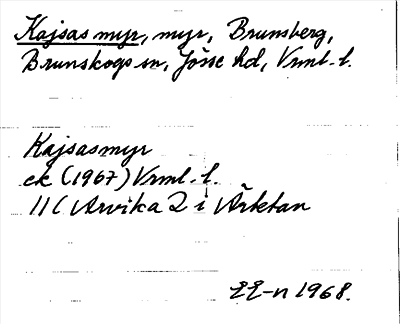 Kajsasmyr, myr, Brunsberg,
Brunskogs sn, Jösse hd, Vrml. l.
Kajsasmyr
ek (1967) Vrml. l.
11C Arvika 2 i Ärktan
EE-n 1968.